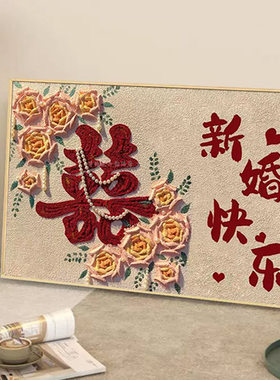 囍
新婚
快乐